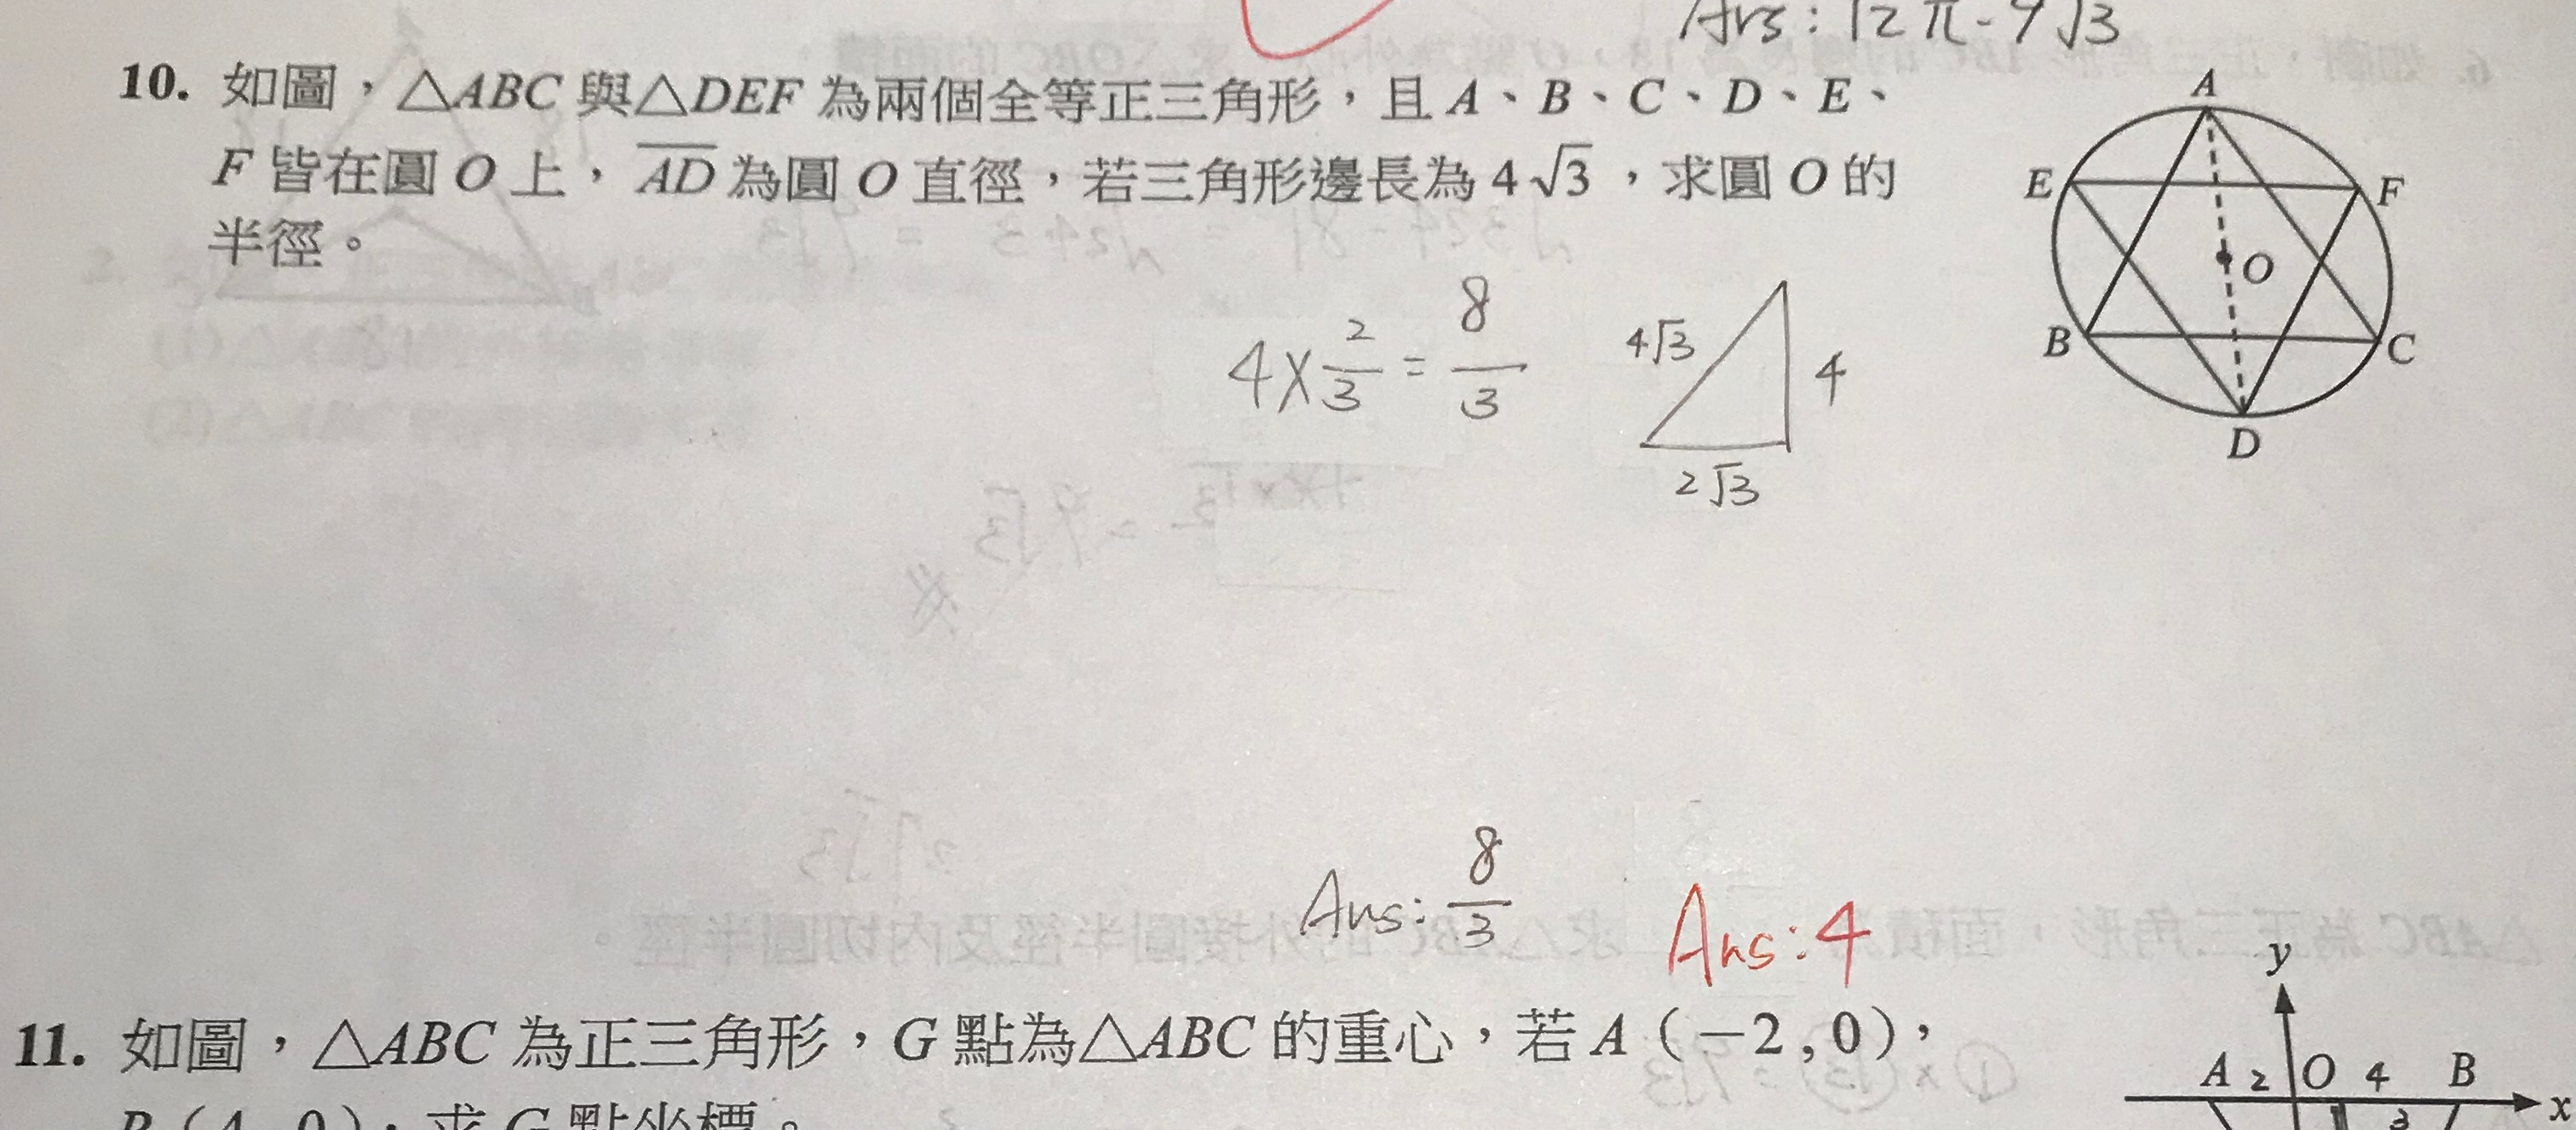 Ans: 12π-9√3
10. 如圖，△ABC 與△DEF 為兩個全等正三角形，且 A、B、C、D、E、
F 皆在圓 O 上，AD 為圓 O 直徑，若三角形邊長為 4√3，求圓 O 的
半徑。
A
E
F
O
B
C
D
4×2/3=8/3
4√3
4
2√3
Ans: 8/3
Ans: 4
11. 如圖，△ABC 為正三角形，G 點為△ABC 的重心，若 A（-2,0），
B（4,0），求 G 點坐標。
y
A 2 O 4 B
x
3